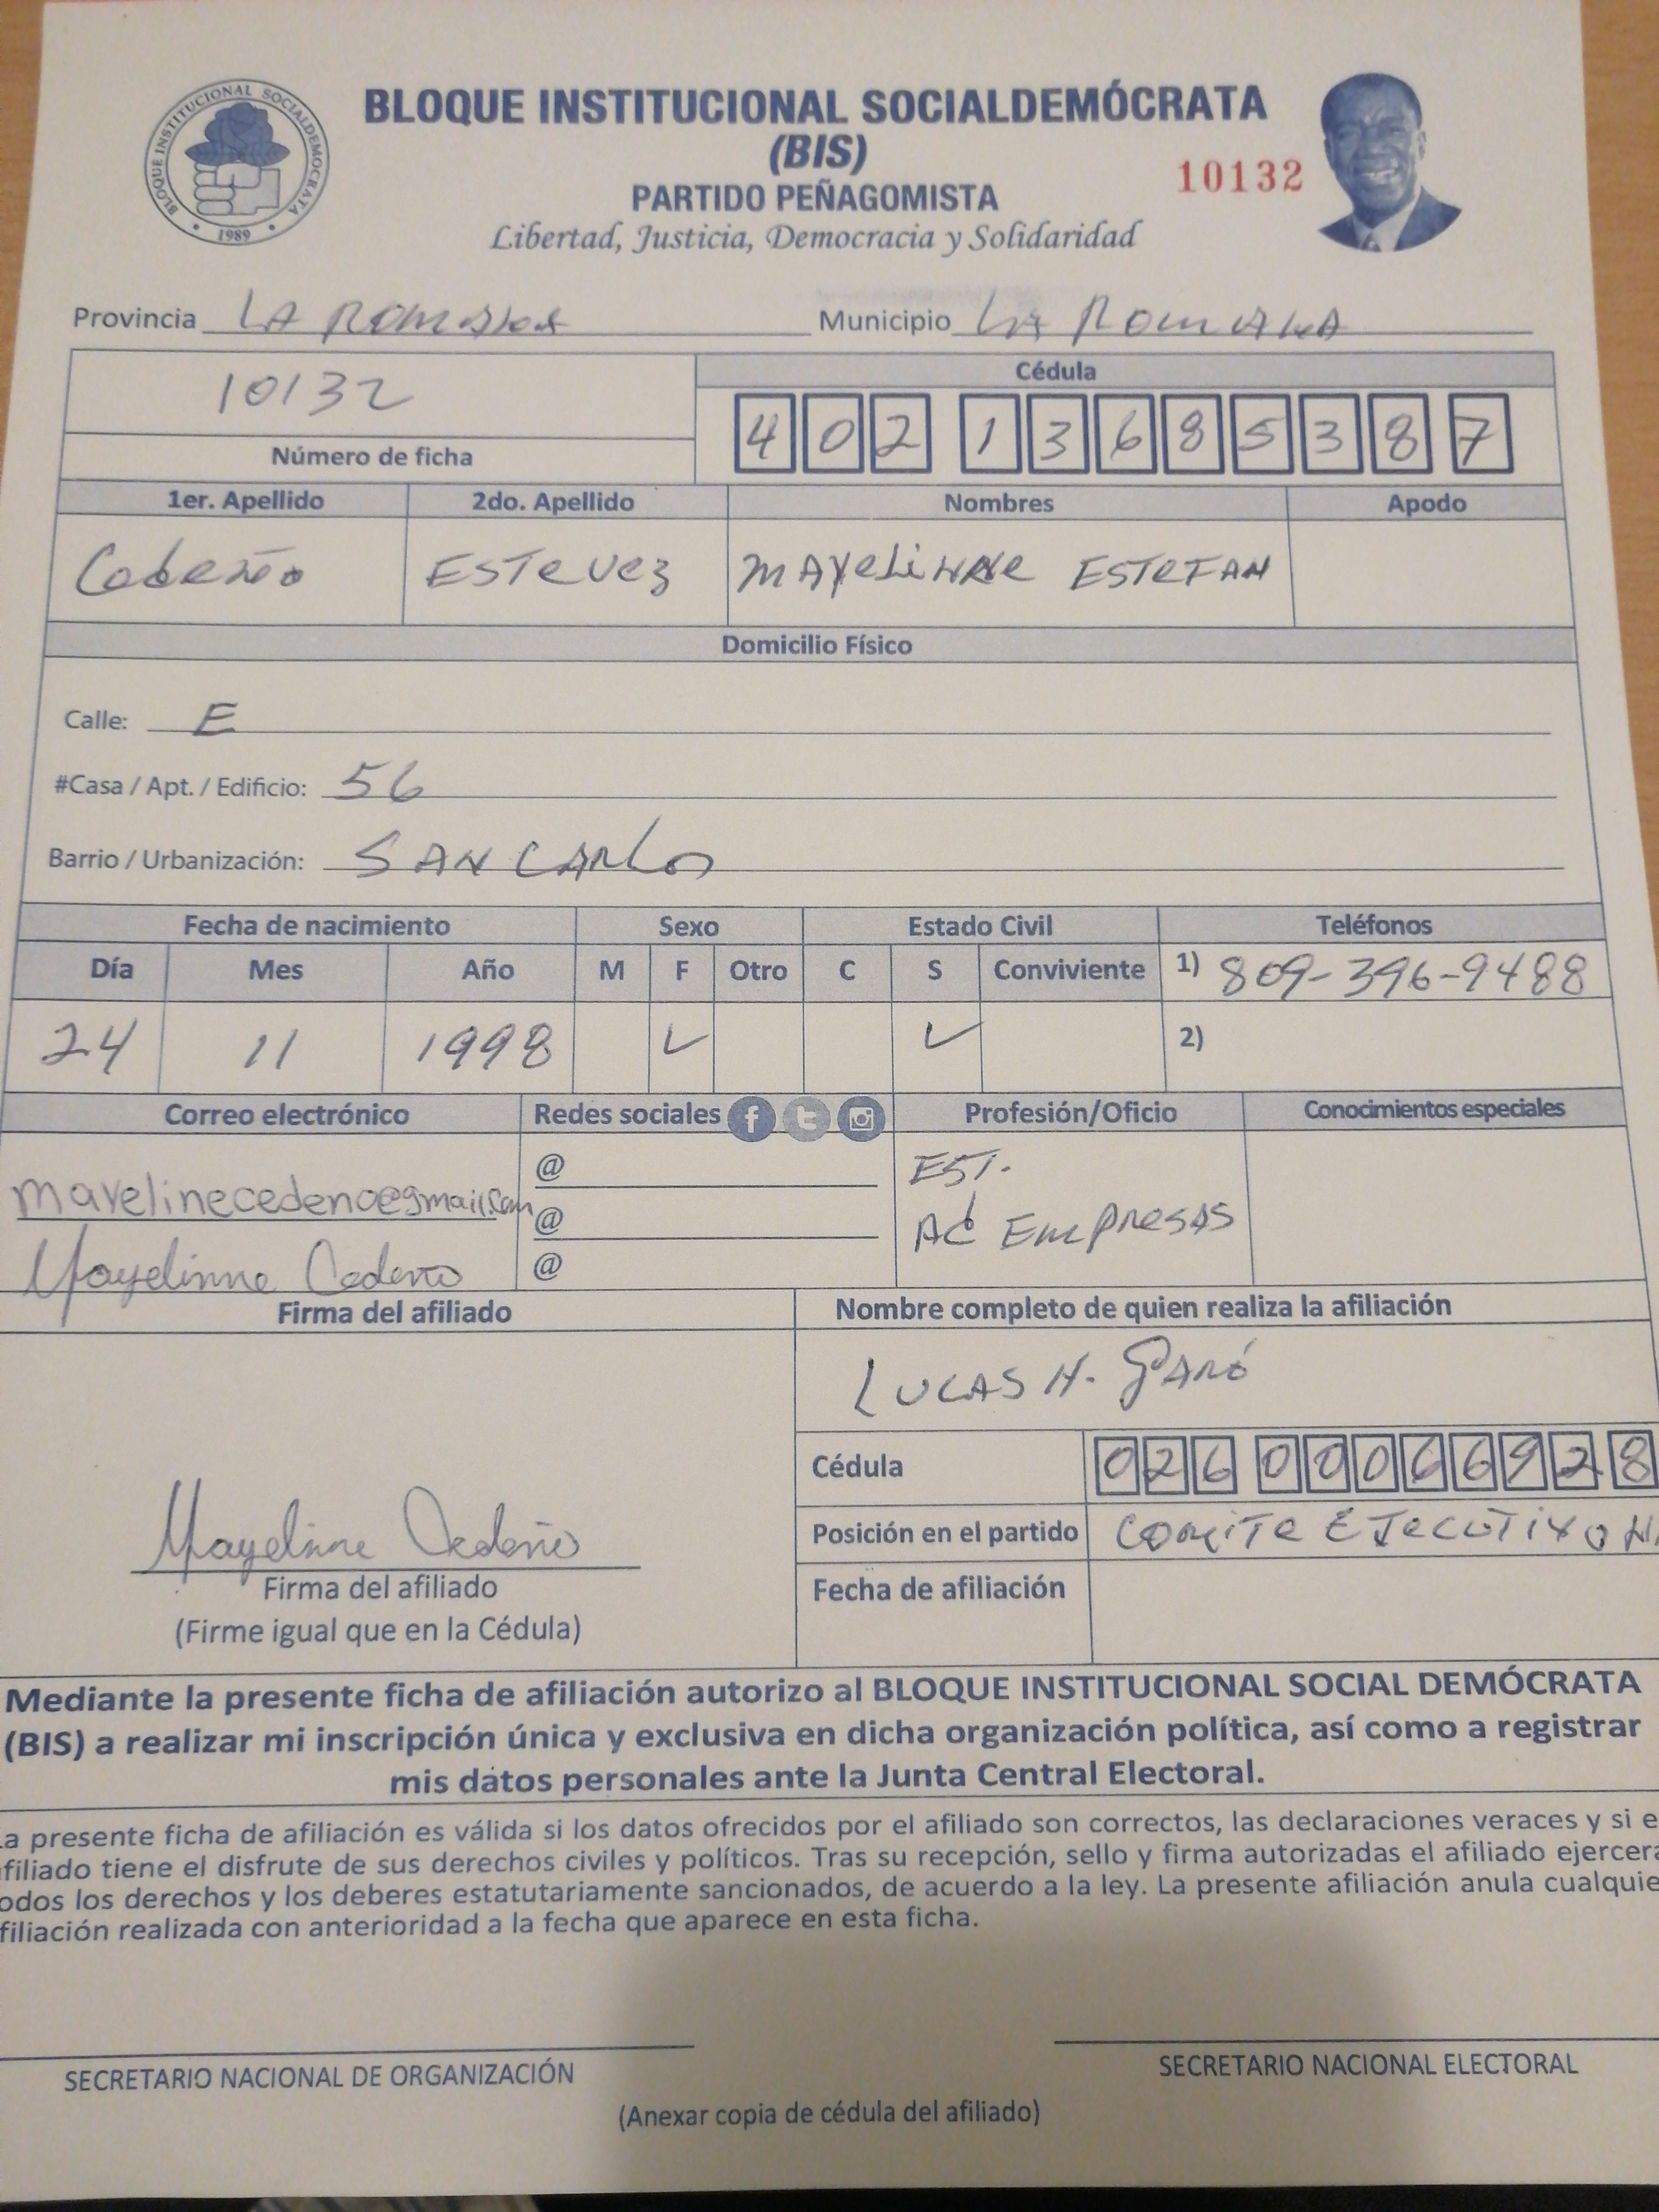 BLOQUE INSTITUCIONAL SOCIALDEMÓCRATA
BLOQUE INSTITUCIONAL SOCIALDEMÓCRATA
1989
(BIS)
10132
PARTIDO PEÑAGOMISTA
Libertad, Justicia, Democracia y Solidaridad
Provincia LA ROMANA Municipio LA ROMANA
10132
Número de ficha
Cédula
4 0 2 1 3 6 8 5 3 8 7
1er. Apellido 2do. Apellido Nombres Apodo
Cedeño ESTEVEZ MAYELINNE ESTEFAN
Domicilio Físico
Calle: E
#Casa / Apt. / Edificio: 56
Barrio / Urbanización: SAN CARLOS
Fecha de nacimiento Sexo Estado Civil Teléfonos
Día Mes Año M F Otro C S Conviviente 1) 809-396-9488
24 11 1998 ✓ ✓ 2)
Correo electrónico Redes sociales f t Profesión/Oficio Conocimientos especiales
mayelinecedeno@gmail.com @ EST.
@ Ad EMPRESAS
Mayelinne Cedeño @
Firma del afiliado Nombre completo de quien realiza la afiliación
LUCAS H.
Cédula 0 2 6 0 0 0 6 6 9 2 8
Mayelinne Cedeño
Posición en el partido COMITE EJECUTIVO N
Firma del afiliado Fecha de afiliación
(Firme igual que en la Cédula)
Mediante la presente ficha de afiliación autorizo al BLOQUE INSTITUCIONAL SOCIAL DEMÓCRATA
(BIS) a realizar mi inscripción única y exclusiva en dicha organización política, así como a registrar
mis datos personales ante la Junta Central Electoral.
a presente ficha de afiliación es válida si los datos ofrecidos por el afiliado son correctos, las declaraciones veraces y si e
filiado tiene el disfrute de sus derechos civiles y políticos. Tras su recepción, sello y firma autorizadas el afiliado ejercera
odos los derechos y los deberes estatutariamente sancionados, de acuerdo a la ley. La presente afiliación anula cualquie
filiación realizada con anterioridad a la fecha que aparece en esta ficha.
SECRETARIO NACIONAL DE ORGANIZACIÓN SECRETARIO NACIONAL ELECTORAL
(Anexar copia de cédula del afiliado)